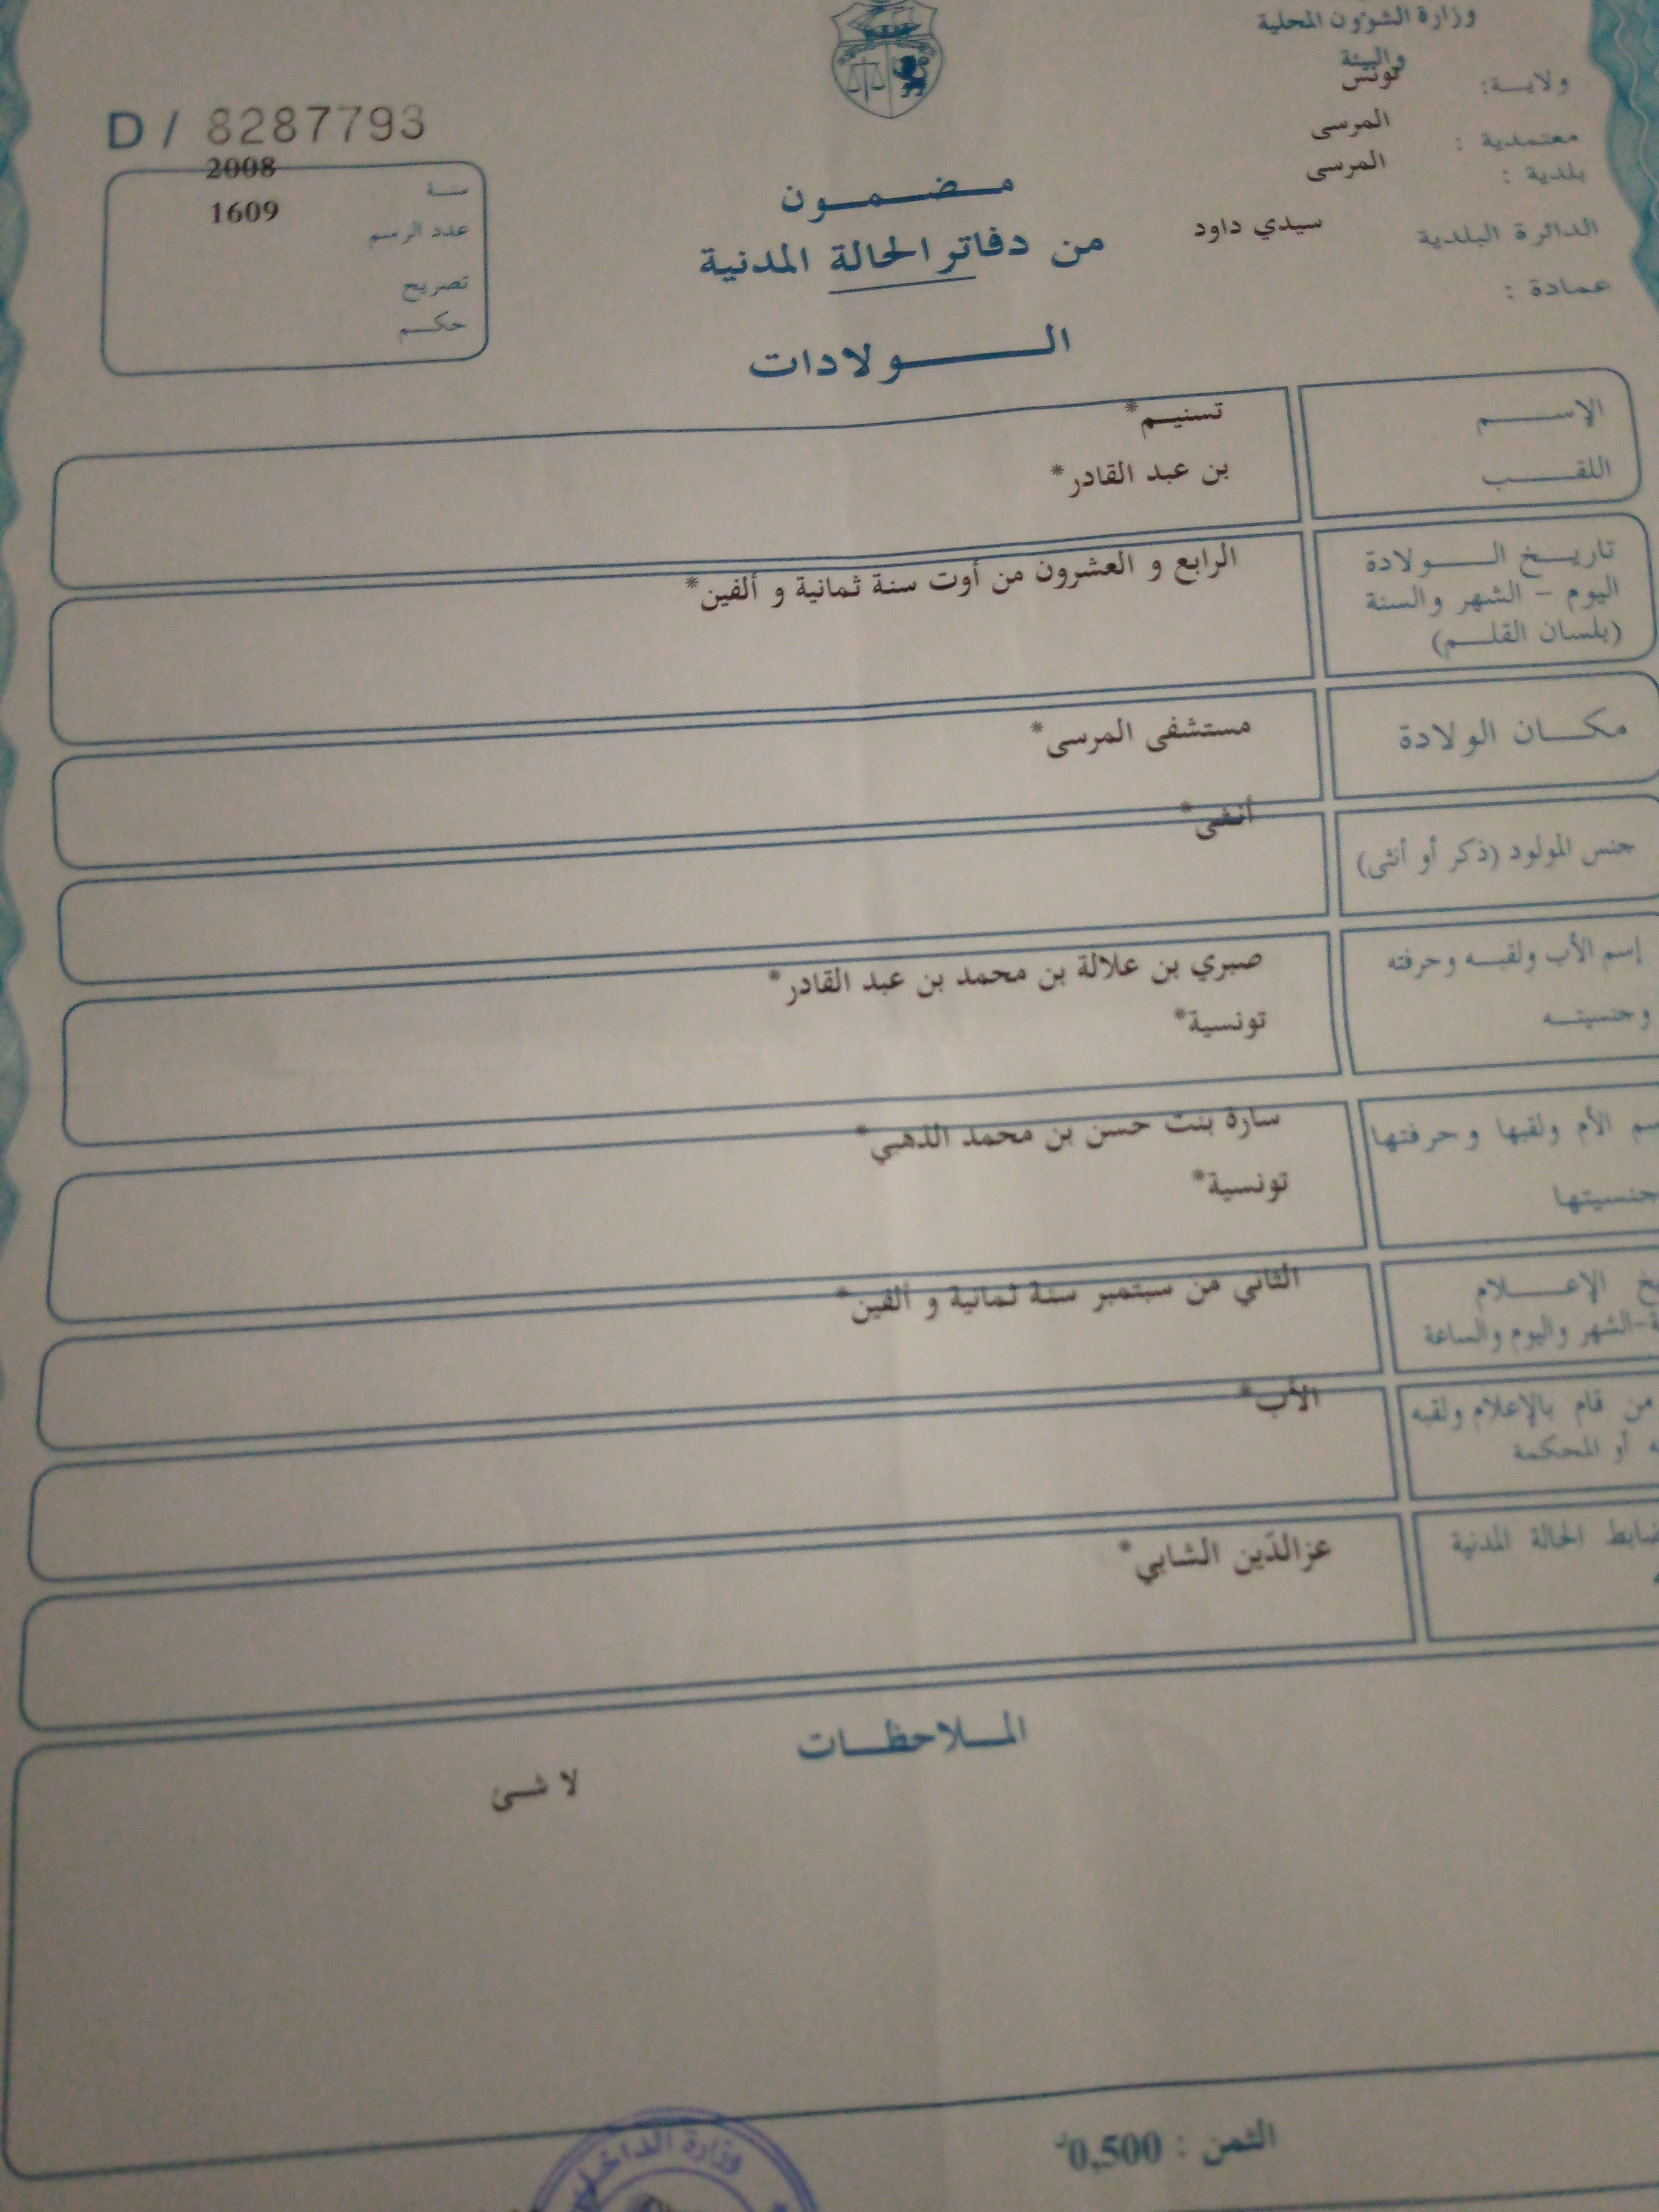 وزارة الشؤون المحلية
والبيئة
ولاية: تونس
معتمدية : المرسى
بلدية : المرسى
الدائرة البلدية سيدي داود
عمادة :
D / 8287793
سنة 2008
عدد الرسم 1609
تصريح
حكم
مضمون
من دفاتر الحالة المدنية
الولادات
الإسم تسنيم*
اللقب بن عبد القادر*
تاريخ الولادة الرابع و العشرون من أوت سنة ثمانية و ألفين*
اليوم - الشهر والسنة
(بلسان القلم)
مكان الولادة مستشفى المرسى*
جنس المولود (ذكر أو أنثى) أنثى*
إسم الأب ولقبه وحرفته صبري بن علالة بن محمد بن عبد القادر*
وجنسيته تونسية*
سم الأم ولقبها وحرفتها سارة بنت حسن بن محمد الذهبي*
جنسيتها تونسية*
خ الإعلام الثاني من سبتمبر سنة ثمانية و ألفين*
ة-الشهر واليوم والساعة
من قام بالإعلام ولقبه الأب*
ه أو المحكمة
ضابط الحالة المدنية عزالدّين الشابي*
الملاحظات
لا شئ
الثمن : 0,500د
وزارة الداخلية